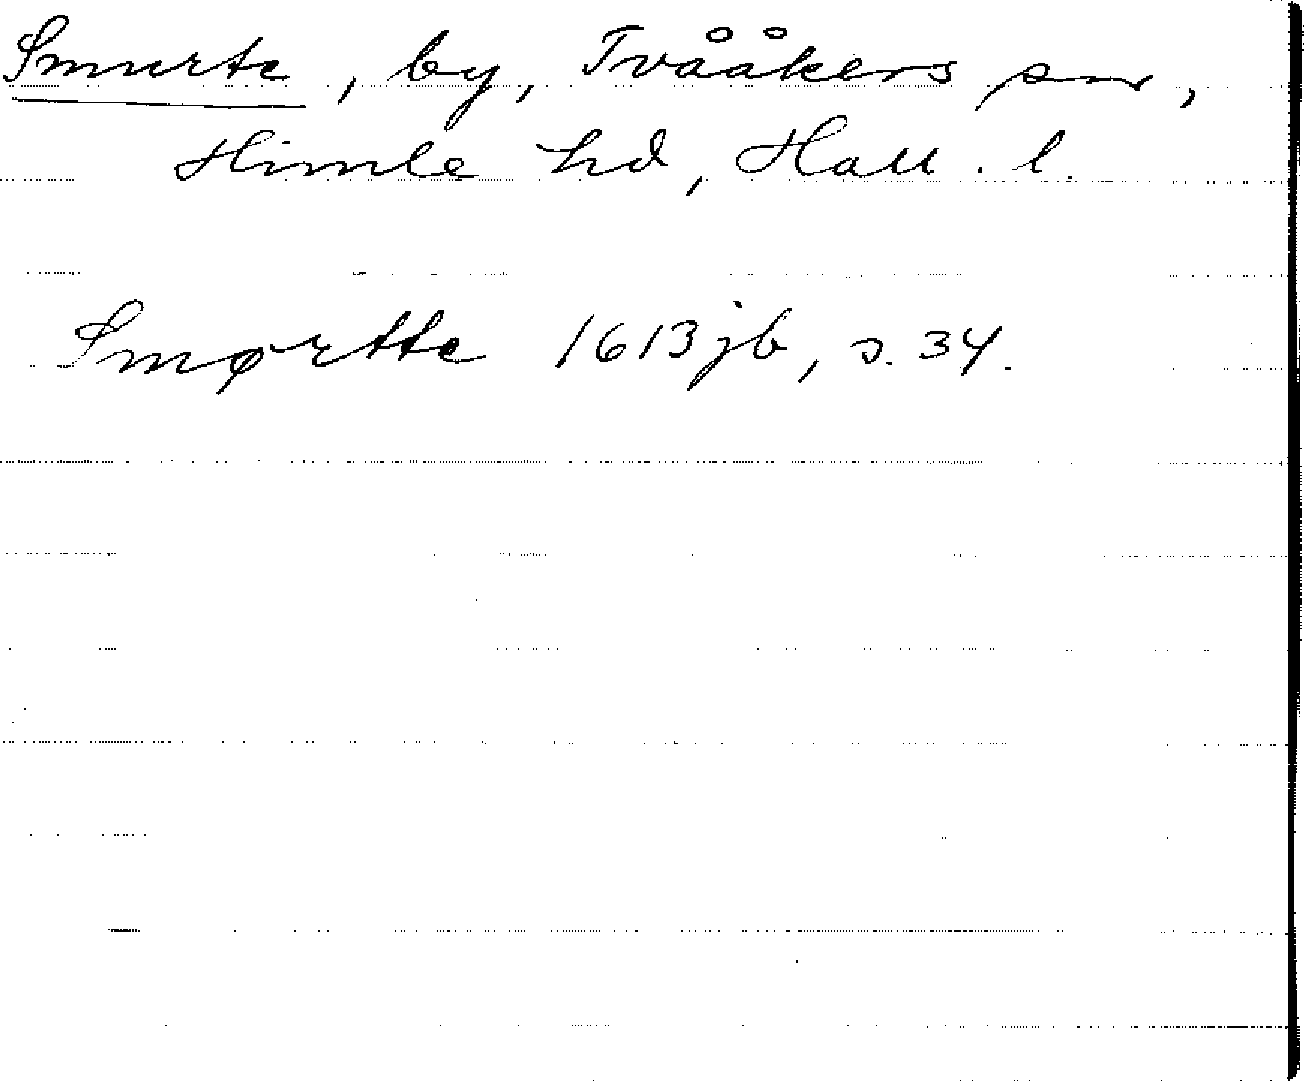 Smurte, by, Tvååkers sn,
Himle hd, Hall. l.
Smørtte 1613 jb, s. 34.